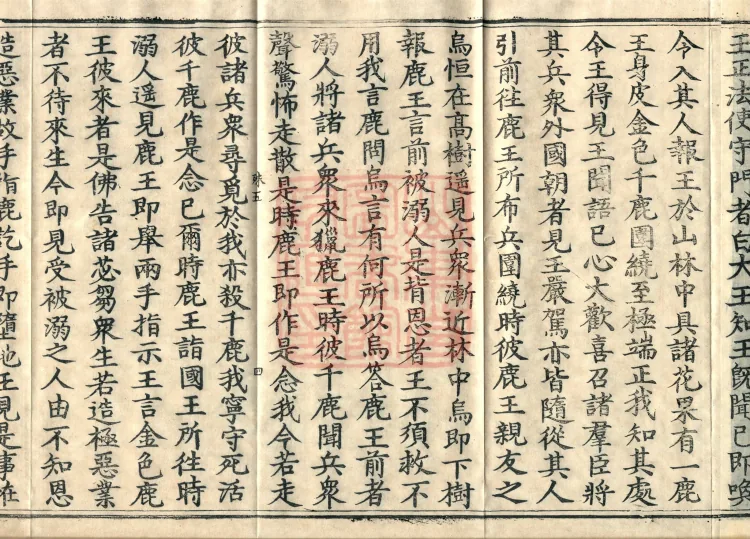 王正法使守門者白大王知王旣聞已即喚
令入其人報王於山林中具諸花果有一鹿
王身皮金色千鹿圍繞至極端正我知其處
令王得見王聞語已心大歡喜召諸羣臣將
其兵衆外國朝者見王嚴駕亦皆隨從其人
引前往鹿王所布兵圍繞時彼鹿王親友之
烏恒在髙樹遥見兵衆漸近林中烏即下樹
報鹿王言前被溺人是背恩者王不須救不
用我言鹿問烏言有何所以烏答鹿王前者
溺人將諸兵衆來獵鹿王時彼千鹿聞兵衆
聲驚怖走散是時鹿王即作是念我今若走
彼諸兵衆尋覓於我亦殺千鹿我寧守死活
彼千鹿作是念已爾時鹿王詣國王所往時
溺人遥見鹿王即舉兩手指示王言金色鹿
王彼來者是佛告諸苾芻衆生若造極惡業
者不待來生今即見受被溺之人由不知恩
造惡業故手指鹿訖手即墮地王見是事在